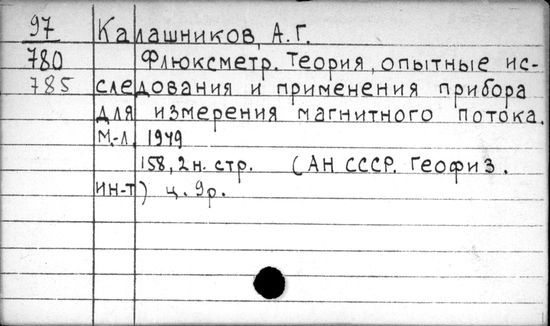 97 Калашников, А.Г.
780 Флюксметр. Теория, опытные ис-
785 следования и применения прибора
для измерения магнитного потока.
М.-Л. 1949
158, 2н. стр. (АН СССР. Геофиз.
ин-т) ц. 9р.